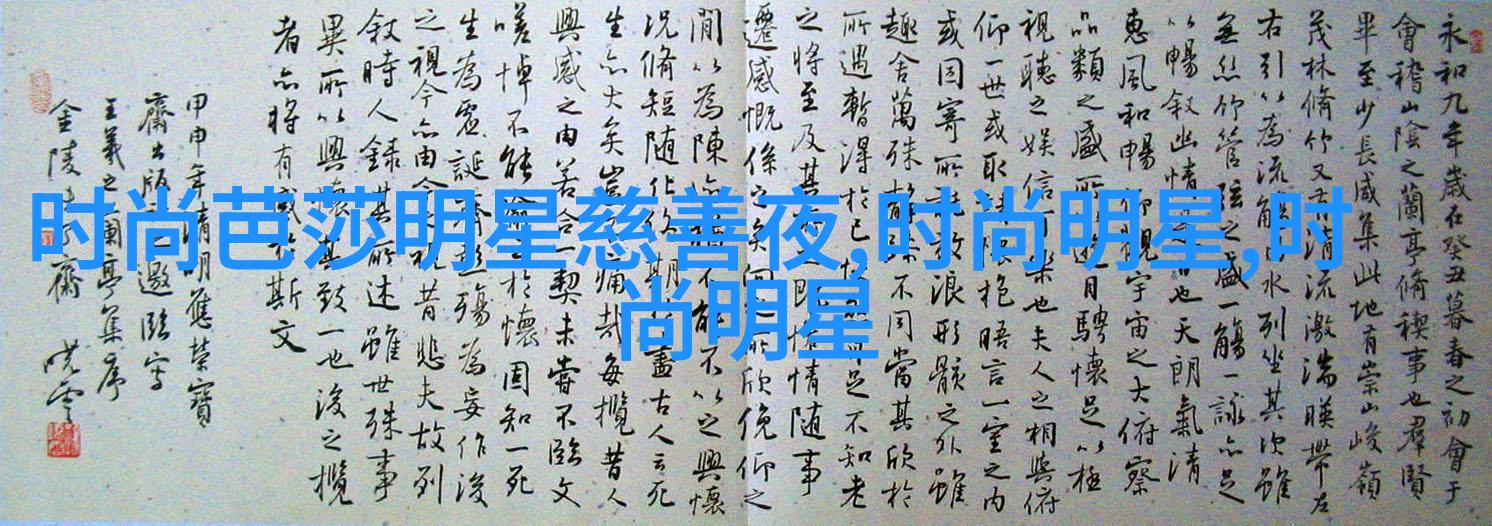 永和九年歲在癸丑暮春之初會于
會稽山陰之蘭亭脩稧事也羣賢
畢至少長咸集此地有崇山峻嶺
茂林脩竹又有清流激湍暎帶左
右引以為流觴水列坐其次雖
無絲竹管弦之盛一觴一詠亦足
以暢叙幽情也天朗氣清
惠風和暢仰觀宇宙之大俯察
品類之盛所遊目騁懷足以極
視聽之娛信可樂也夫人之相與俯
仰一世或取抱晤言一室之内
或因寄所託放浪形骸之外雖
趣舍萬殊不同當其欣於
所遇暫得於己足不知老
之將至及其情随事
遷感慨係之矣向之所欣俛仰之
間以為陳不能不以之興懷
况脩短随化期盡古人云死
生亦大矣豈痛哉每攬昔人
興感之由若合一契未嘗不臨文
嗟悼不能喻於懷固知一死
生為虛誕齊殤為妄作後
之視今亦由今視昔悲夫故列
叙時人錄其所述雖世殊事
異所以興懷其致一也後之攬
者亦將有感斯文
甲申年清明應榮寶
齋出版邀臨寫
王羲之蘭亭集序
金陵齋
时尚芭莎明星慈善夜,时尚明星,时
尚明星